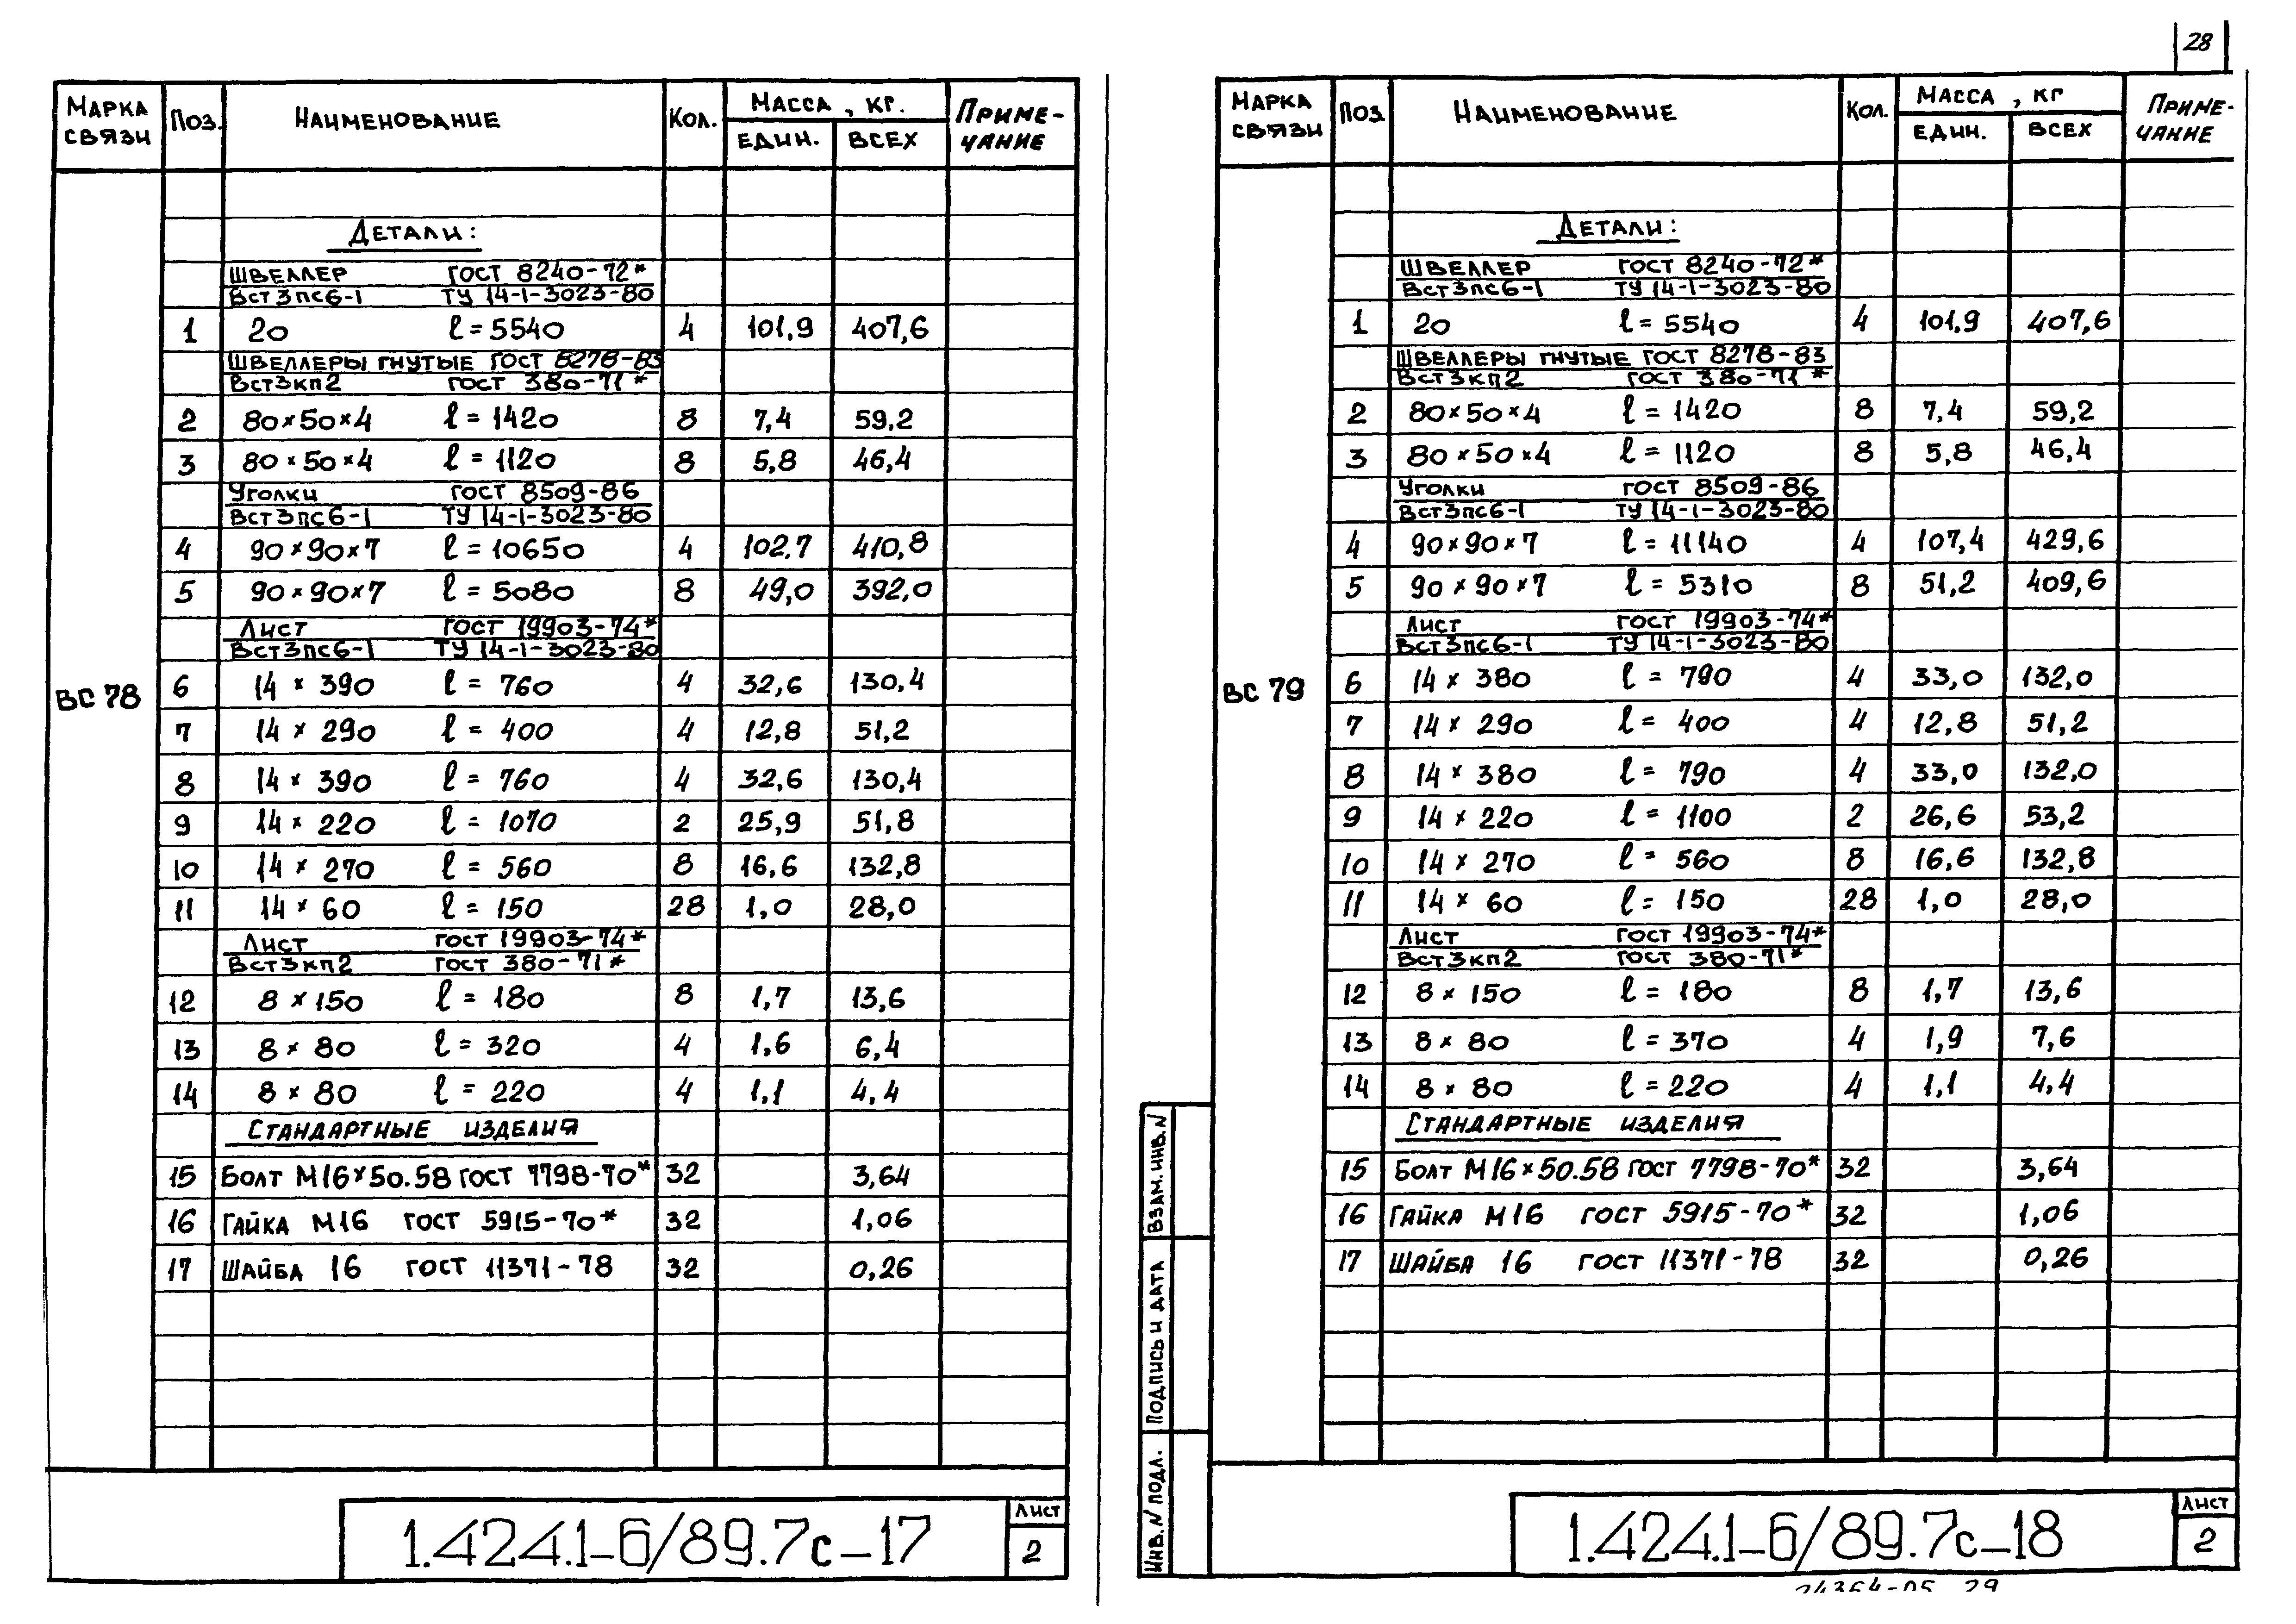 28
МАРКА СВЯЗИ ПОЗ. НАИМЕНОВАНИЕ КОЛ. МАССА, КГ. ЕДИН. ВСЕХ ПРИМЕ-ЧАНИЕ
ДЕТАЛИ:
ШВЕЛЛЕР ГОСТ 8240-72*
ВСт3пс6-1 ТУ 14-1-3023-80
1 20 ℓ = 5540 4 101,9 407,6
ШВЕЛЛЕРЫ ГНУТЫЕ ГОСТ 8278-83
ВСт3кп2 ГОСТ 380-71*
2 80×50×4 ℓ = 1420 8 7,4 59,2
3 80×50×4 ℓ = 1120 8 5,8 46,4
УГОЛКИ ГОСТ 8509-86
ВСт3пс6-1 ТУ 14-1-3023-80
4 90×90×7 ℓ = 10650 4 102,7 410,8
5 90×90×7 ℓ = 5080 8 49,0 392,0
ЛИСТ ГОСТ 19903-74*
ВСт3пс6-1 ТУ 14-1-3023-80
ВС 78
6 14 × 390 ℓ = 760 4 32,6 130,4
7 14 × 290 ℓ = 400 4 12,8 51,2
8 14 × 390 ℓ = 760 4 32,6 130,4
9 14 × 220 ℓ = 1070 2 25,9 51,8
10 14 × 270 ℓ = 560 8 16,6 132,8
11 14 × 60 ℓ = 150 28 1,0 28,0
ЛИСТ ГОСТ 19903-74*
ВСт3кп2 ГОСТ 380-71*
12 8 × 150 ℓ = 180 8 1,7 13,6
13 8 × 80 ℓ = 320 4 1,6 6,4
14 8 × 80 ℓ = 220 4 1,1 4,4
СТАНДАРТНЫЕ ИЗДЕЛИЯ
15 БОЛТ М16×50.58 ГОСТ 7798-70* 32 3,64
16 ГАЙКА М16 ГОСТ 5915-70* 32 1,06
17 ШАЙБА 16 ГОСТ 11371-78 32 0,26
1.424.1-6/89.7с-17
ЛИСТ
2
МАРКА СВЯЗИ ПОЗ. НАИМЕНОВАНИЕ КОЛ. МАССА, КГ ЕДИН. ВСЕХ ПРИМЕ-ЧАНИЕ
ДЕТАЛИ:
ШВЕЛЛЕР ГОСТ 8240-72*
ВСт3пс6-1 ТУ 14-1-3023-80
1 20 ℓ = 5540 4 101,9 407,6
ШВЕЛЛЕРЫ ГНУТЫЕ ГОСТ 8278-83
ВСт3кп2 ГОСТ 380-71*
2 80×50×4 ℓ = 1420 8 7,4 59,2
3 80×50×4 ℓ = 1120 8 5,8 46,4
УГОЛКИ ГОСТ 8509-86
ВСт3пс6-1 ТУ 14-1-3023-80
4 90×90×7 ℓ = 11140 4 107,4 429,6
5 90×90×7 ℓ = 5310 8 51,2 409,6
ЛИСТ ГОСТ 19903-74*
ВСт3пс6-1 ТУ 14-1-3023-80
ВС 79
6 14 × 380 ℓ = 790 4 33,0 132,0
7 14 × 290 ℓ = 400 4 12,8 51,2
8 14 × 380 ℓ = 790 4 33,0 132,0
9 14 × 220 ℓ = 1100 2 26,6 53,2
10 14 × 270 ℓ = 560 8 16,6 132,8
11 14 × 60 ℓ = 150 28 1,0 28,0
ЛИСТ ГОСТ 19903-74*
ВСт3кп2 ГОСТ 380-71*
12 8 × 150 ℓ = 180 8 1,7 13,6
13 8 × 80 ℓ = 370 4 1,9 7,6
14 8 × 80 ℓ = 220 4 1,1 4,4
СТАНДАРТНЫЕ ИЗДЕЛИЯ
15 БОЛТ М16×50.58 ГОСТ 7798-70* 32 3,64
16 ГАЙКА М16 ГОСТ 5915-70* 32 1,06
17 ШАЙБА 16 ГОСТ 11371-78 32 0,26
ИНВ. N ПОДЛ. ПОДПИСЬ И ДАТА ВЗАМ. ИНВ. N
1.424.1-6/89.7с-18
ЛИСТ
2
24364-05 29